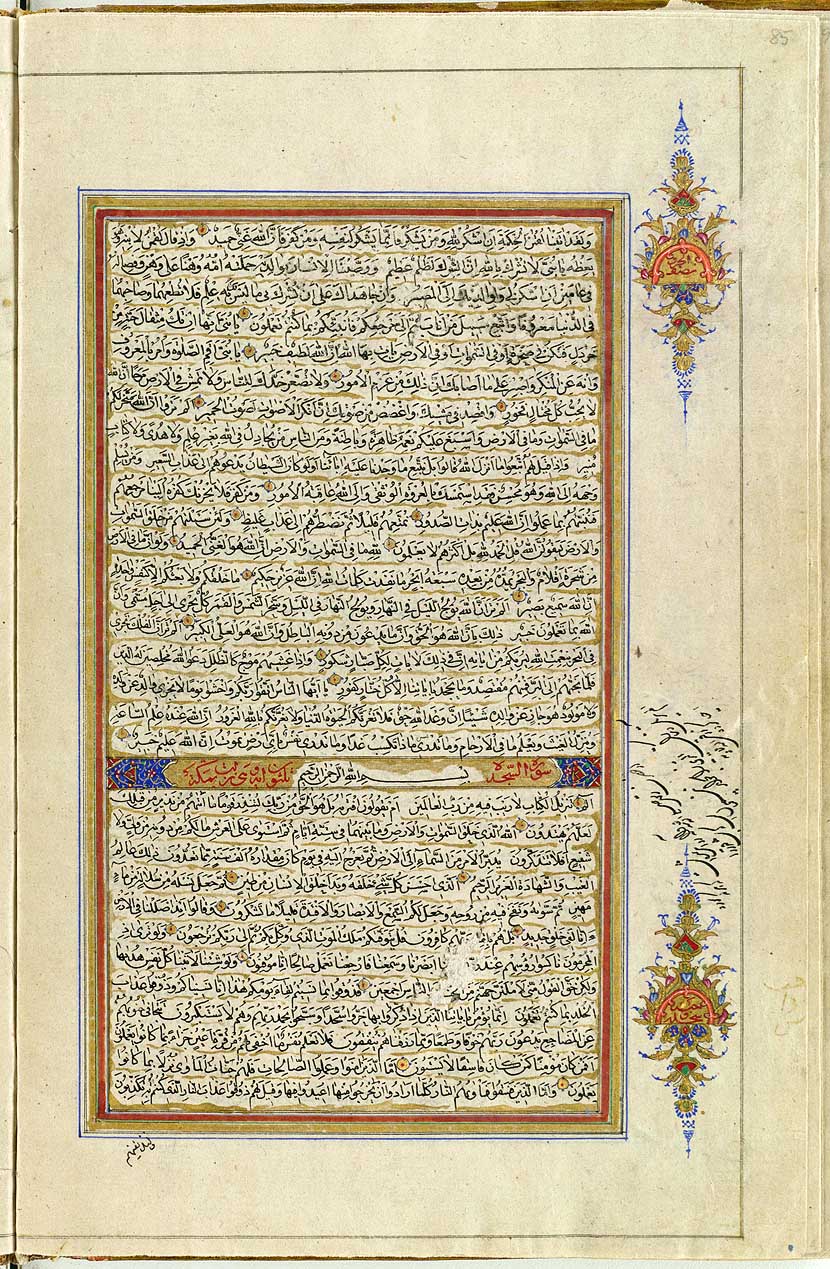 ولقد اتينا لقمن الحكمة ان اشكر لله ومن يشكر فانما يشكر لنفسه ومن كفر فان الله غني حميد واذ قال لقمن لابنه وهو
يعظه يا بني لا تشرك بالله ان الشرك لظلم عظيم ووصينا الانسان بوالديه حملته امه وهنا على وهن وفصاله
في عامين ان اشكر لي ولوالديك الي المصير وان جاهداك على ان تشرك بي ما ليس لك به علم فلا تطعهما وصاحبهما
في الدنيا معروفا واتبع سبيل من اناب الي ثم الي مرجعكم فانبئكم بما كنتم تعملون يا بني انها ان تك مثقال حبة من
خردل فتكن في صخرة او في السموات او في الارض يات بها الله ان الله لطيف خبير يا بني اقم الصلوة وامر بالمعروف
وانه عن المنكر واصبر على ما اصابك ان ذلك من عزم الامور ولا تصعر خدك للناس ولا تمش في الارض مرحا ان الله
لا يحب كل مختال فخور واقصد في مشيك واغضض من صوتك ان انكر الاصوات لصوت الحمير الم تروا ان الله سخر لكم
ما في السموات وما في الارض واسبغ عليكم نعمه ظاهرة وباطنة ومن الناس من يجادل في الله بغير علم ولا هدى ولا كتاب
منير واذا قيل لهم اتبعوا ما انزل الله قالوا بل نتبع ما وجدنا عليه اباءنا اولو كان الشيطان يدعوهم الى عذاب السعير ومن يسلم
وجهه الى الله وهو محسن فقد استمسك بالعروة الوثقى والى الله عاقبة الامور ومن كفر فلا يحزنك كفره الينا مرجعهم
فننبئهم بما عملوا ان الله عليم بذات الصدور نمتعهم قليلا ثم نضطرهم الى عذاب غليظ ولئن سالتهم من خلق السموات
والارض ليقولن الله قل الحمد لله بل اكثرهم لا يعلمون لله ما في السموات والارض ان الله هو الغني الحميد ولو ان ما في الارض
من شجرة اقلام والبحر يمده من بعده سبعة ابحر ما نفدت كلمات الله ان الله عزيز حكيم ما خلقكم ولا بعثكم الا كنفس واحدة
ان الله سميع بصير الم تر ان الله يولج الليل في النهار ويولج النهار في الليل وسخر الشمس والقمر كل يجري الى اجل مسمى وان
الله بما تعملون خبير ذلك بان الله هو الحق وان ما يدعون من دونه الباطل وان الله هو العلي الكبير الم تر ان الفلك تجري
في البحر بنعمت الله ليريكم من اياته ان في ذلك لايات لكل صبار شكور واذا غشيهم موج كالظلل دعوا الله مخلصين له الدين
فلما نجيهم الى البر فمنهم مقتصد وما يجحد باياتنا الا كل ختار كفور يا ايها الناس اتقوا ربكم واخشوا يوما لا يجزي والد عن ولده
ولا مولود هو جاز عن والده شيئا ان وعد الله حق فلا تغرنكم الحيوة الدنيا ولا يغرنكم بالله الغرور ان الله عنده علم الساعة
وينزل الغيث ويعلم ما في الارحام وما تدري نفس ماذا تكسب غدا وما تدري نفس باي ارض تموت ان الله عليم خبير
سورة السجدة بسم الله الرحمن الرحيم ثلثون اية وهي مكية
الم تنزيل الكتاب لا ريب فيه من رب العالمين ام يقولون افتريه بل هو الحق من ربك لتنذر قوما ما اتيهم من نذير من قبلك
لعلهم يهتدون الله الذي خلق السموات والارض وما بينهما في ستة ايام ثم استوى على العرش ما لكم من دونه من ولي ولا
شفيع افلا تتذكرون يدبر الامر من السماء الى الارض ثم يعرج اليه في يوم كان مقداره الف سنة مما تعدون ذلك عالم
الغيب والشهادة العزيز الرحيم الذي احسن كل شيء خلقه وبدا خلق الانسان من طين ثم جعل نسله من سلالة من ماء
مهين ثم سويه ونفخ فيه من روحه وجعل لكم السمع والابصار والافئدة قليلا ما تشكرون وقالوا ائذا ضللنا في الارض
ءانا لفي خلق جديد بل هم بلقاء ربهم كافرون قل يتوفيكم ملك الموت الذي وكل بكم ثم الى ربكم ترجعون ولو ترى اذ
المجرمون ناكسوا رؤسهم عند ربهم ربنا ابصرنا وسمعنا فارجعنا نعمل صالحا انا موقنون ولو شئنا لاتينا كل نفس هديها
ولكن حق القول مني لاملان جهنم من الجنة والناس اجمعين فذوقوا بما نسيتم لقاء يومكم هذا انا نسيناكم وذوقوا عذاب
الخلد بما كنتم تعملون انما يؤمن باياتنا الذين اذا ذكروا بها خروا سجدا وسبحوا بحمد ربهم وهم لا يستكبرون تتجافى جنوبهم
عن المضاجع يدعون ربهم خوفا وطمعا ومما رزقناهم ينفقون فلا تعلم نفس ما اخفي لهم من قرة اعين جزاء بما كانوا يعملون
افمن كان مؤمنا كمن كان فاسقا لا يستوون اما الذين امنوا وعملوا الصالحات فلهم جنات الماوى نزلا بما كانوا
يعملون واما الذين فسقوا فماويهم النار كلما ارادوا ان يخرجوا منها اعيدوا فيها وقيل لهم ذوقوا عذاب النار الذي كنتم به تكذبون
ولنذيقنهم
85